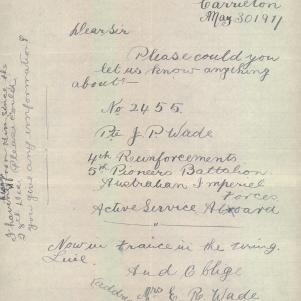 Carrieton
May 30 191
Dear Sir
Please could you
let us know anything
about
No 2455
Pte J P Wade
4th Reinforcements
5th Pioneers Battalion
Australian Imperiel
Forces
Active Service Aboard
Now in France in the
Line.
And Oblige
Mrs E. R. Wade
from him since the
Please could
you give any imformation?